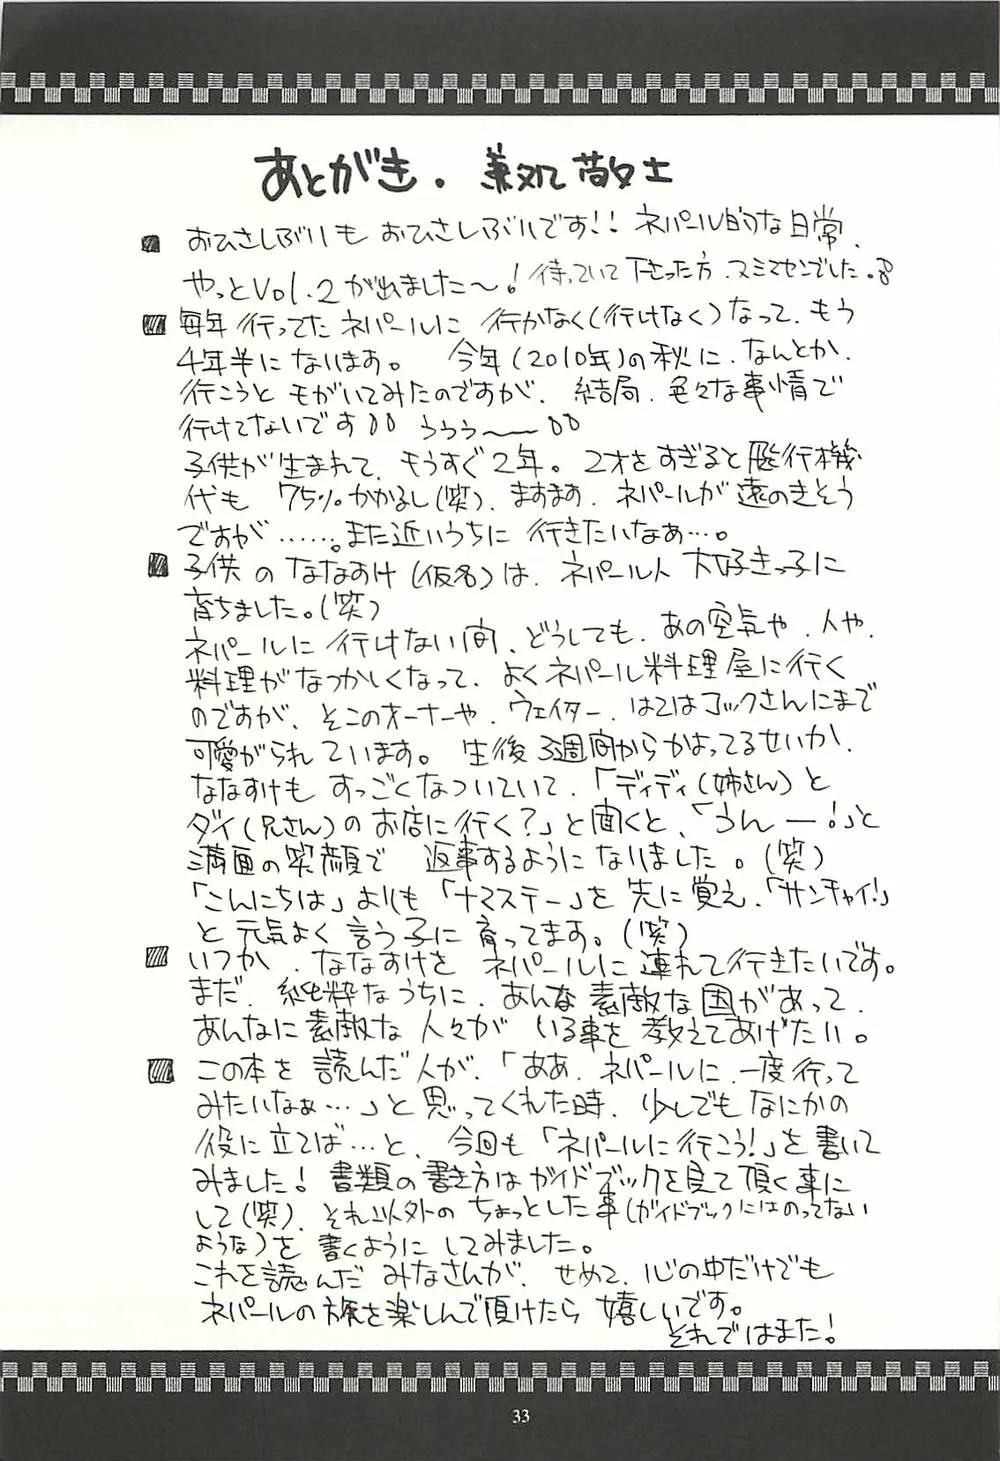 あとがき. 兼処敬士
■ おひさしぶりもおひさしぶりです!! ネパール的な日常、
やっとVol.2が出ました〜! 待っていて下さった方、スミマセンでした。
■ 毎年行ってたネパールに 行かなく(行けなく)なって、もう
4年半になります。 今年(2010年)の秋に、なんとか、
行こうとモがいてみたのですが、結局、色々な事情で
行けてないです うぅぅ〜
子供が生まれて、もうすぐ2年。2才をすぎると飛行機
代も 75%かかるし(笑)、ますます、ネパールが遠のきそう
ですが……。また近いうちに 行きたいなぁ…。
■ 子供のななすけ(仮名)は、ネパール人大好きっ子に
育ちました。(笑)
ネパールに 行けない間、どうしても、あの空気や、人や、
料理がなつかしくなって、よくネパール料理屋に行く
のですが、そこのオーナーや、ウェイター、はてはコックさんにまで
可愛がられています。 生後3週間からかよってるせいか、
ななすけも すっごくなついていて、「ディディ(姉さん)と
ダイ(兄さん)のお店に行く?」と聞くと、「うんー!」と
満面の笑顔で 返事するようになりました。(笑)
「こんにちは」よりも「ナマステー」を先に覚え、「サンチャイ!」
と 元気よく 言う子に育ってます。(笑)
■ いつか、ななすけを ネパールに連れて行きたいです。
まだ、純粋なうちに、あんな素敵な国があって、
あんなに素敵な人々が いる事を教えてあげたい。
■ この本を 読んだ人が、「ああ、ネパールに、一度行って
みたいなぁ…」と思ってくれた時、少しでもなにかの
役に立てば…と、今回も「ネパールに行こう!」を書いて
みました! 書類の書き方はガイドブックを見て頂く事に
して(笑)、それ以外のちょっとした事(ガイドブックにはのってない
ような)を 書くようにしてみました。
これを読んだみなさんが、せめて、心の中だけでも
ネパールの旅を楽しんで頂けたら 嬉しいです。
それではまた!
33